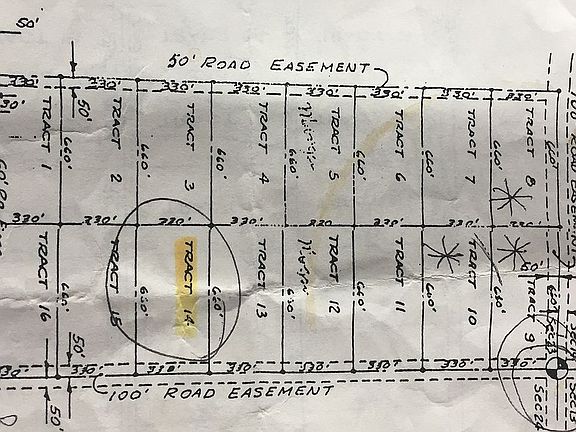 50'
50' ROAD EASEMENT
330' 330' 330' 330' 330' 330' 330' 330'
50'
TRACT 1
TRACT 2
TRACT 3
TRACT 4
TRACT 5
TRACT 6
TRACT 7
TRACT 8
660' 660' 660' 660' 660' 660' 660' 660'
330' 330' 330' 330' 330' 330' 330'
TRACT 16
TRACT 15
TRACT 14
TRACT 13
TRACT 12
TRACT 11
TRACT 10
TRACT 9
660' 660' 660' 660' 660' 660' 660'
50'
330' 330' 330' 330' 330' 330' 330'
100' ROAD EASEMENT
50'
SEC. 24